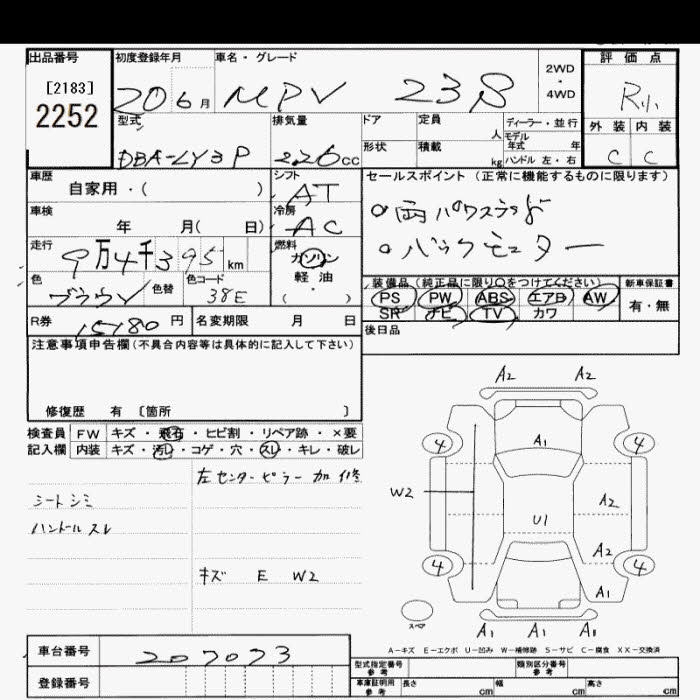 出品番号 初度登録年月 車名・グレード 評価点
[2183]
2252
20 6月 MPV 23S 2WD・4WD R小
型式 排気量 ドア 定員 人 ディーラー・並行 外装 内装
モデル年式 年
DBA-LY3P 2260cc 形状 積載 kg ハンドル 左・右 C C
車歴 自家用・( ) シフト AT セールスポイント (正常に機能するものに限ります)
車検 年 月( 日) 冷房 AC ○両パワスラド
走行 9万4千395km 燃料 ガソリン・軽油・( ) ○バックモニター
色 ブラウン 色替 色コード 38E
装備品(純正品に限り○をつけてください) 新車保証書
PS PW ABS エアB AW 有・無
SR ナビ TV カワ
R券 15180円 名変期限 月 日 後日品
注意事項申告欄(不具合内容等は具体的に記入して下さい)
修復歴 有 [箇所 ]
検査員 FW キズ・飛石・ヒビ割・リペア跡・×要
記入欄 内装 キズ・汚レ・コゲ・穴・スレ・キレ・破レ
左センターピラー 加修
シートシミ
ハンドルスレ
キズ E W2
A2 A2
A1
4 4
W2 A2
U1
A2
4 4
A1
スペア
A1 A1 A1
A-キズ E-エクボ U-凹み W-補修跡 S-サビ C-腐食 XX-交換済
車台番号 207073
登録番号
型式指定番号 参考 類別区分番号 参考
車庫証明用 参考 長さ cm 幅 cm 高さ cm